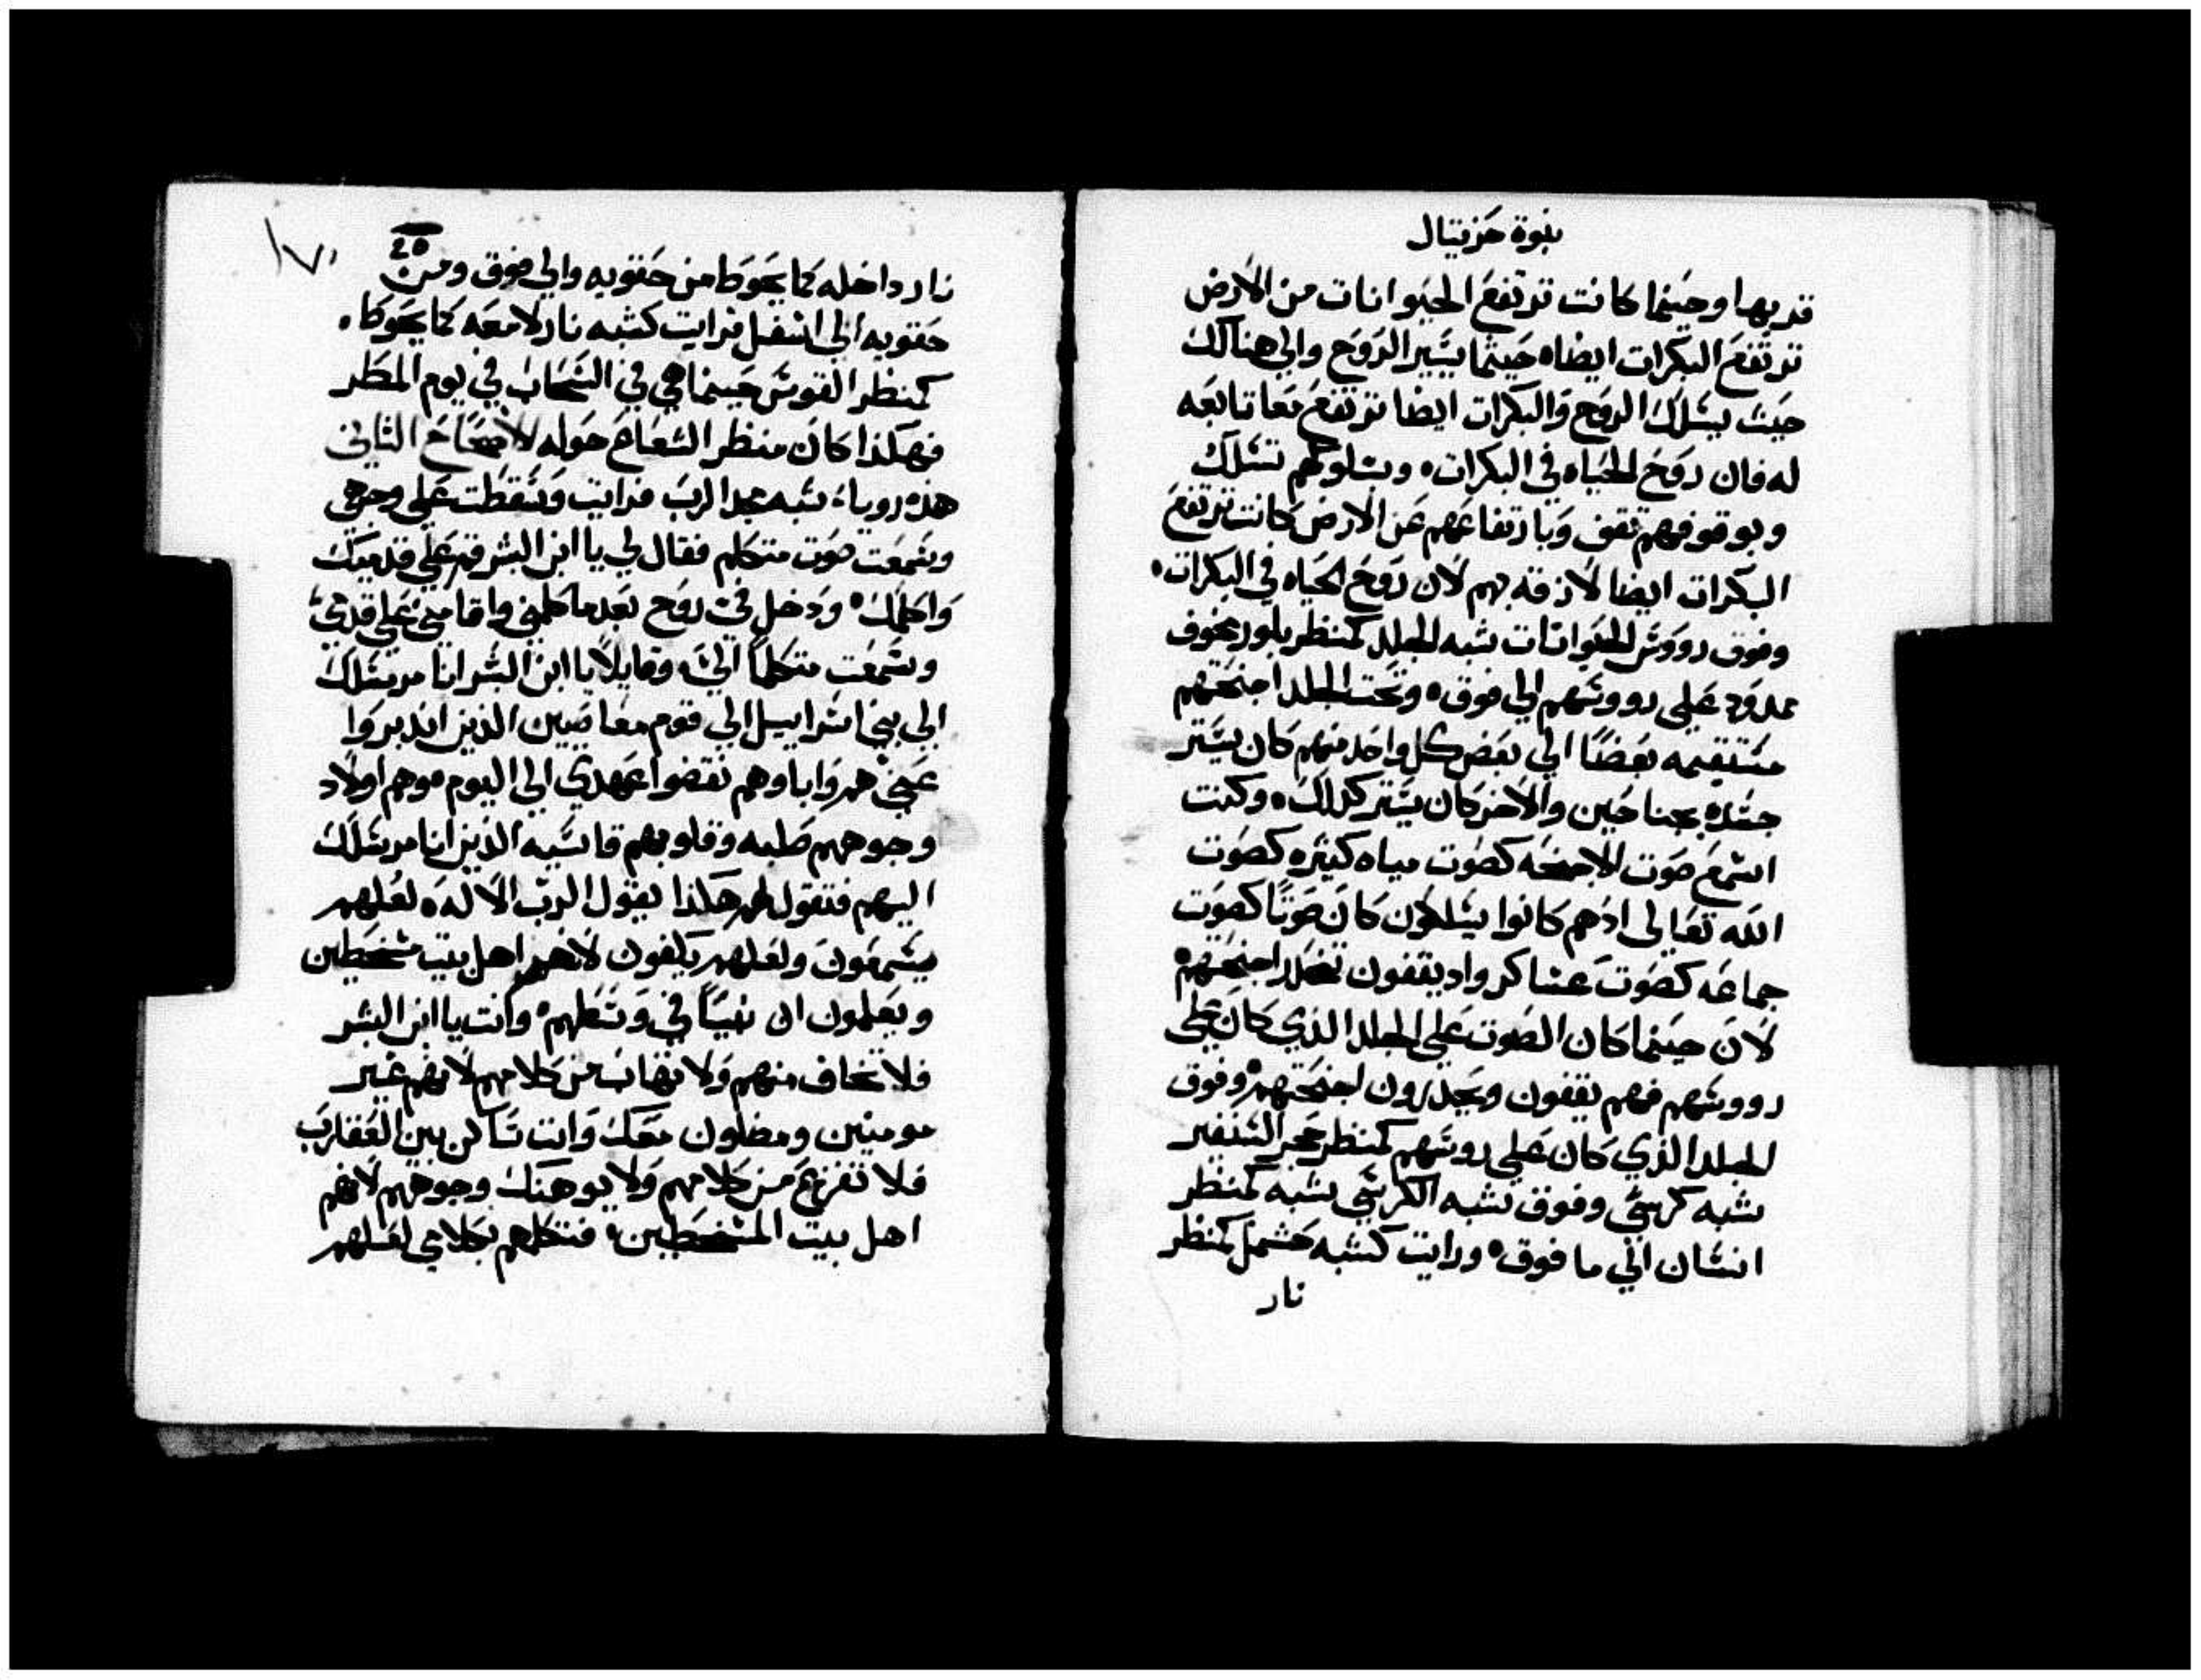 نبوة حزقيال
قربها وحينما كانت ترتفع الحيوانات من الارض
ترتفع البكرات ايضاه حيثما يسير الروح والي هنالك
حيث يسلك الروح والبكرات ايضا ترتفع معا تابعه
له فان روح الحياه في البكرات، وبسلوكهم تسلك
وبوقوفهم تقف وبارتفاعهم عن الارض كانت ترتفع
البكرات ايضا لازقه بهم لان روح الحياه في البكرات،
وفوق رووس الحيوانات شبه الجلد كمنظر بلور مخوف
ممدود علي رووسهم الي فوق ه وتحت الجلد اجنحتهم
مستقيمه بعضًا الي بعض كل واحد منهم كان يستر
جسده بجناحين والاخر كان يستر كذلك ه وكنت
اسمع صوت الاجنحه كصوت مياه كثيره كصوت
الله تعالي اذهم كانوا يسلكون كان صوتًا كصوت
جماعه كصوت عساكر واد يقفون تخلد اجنحتهم ه
لان حينما كان الصوت علي الجلد الذي كان علي
رووسهم فهم يقفون ويجدرون اجنحتهم ه وفوق
الجلد الذي كان علي روسهم كمنظر حجر السنفير
شبه كرسي وفوق شبه الكرسي شبه كمنظر
انسان الي ما فوق ه ورايت كشبه حشمل كمنظر
نار
١٧١
٢٥
نار داخله كما يحوط من حقويه والي فوق ومن
حقويه الي اسفل فرايت كشبه نار لامعه كما يحوط ه
كمنظر القوس حينما هي في السحاب في يوم المطر
فهكذا كان منظر الشعاع حوله الاصحاح الثاني
هذه رويا، شبه مجد الرب فرايت وسقطت علي وجهي
وسمعت صوت متكلم فقال لي يا ابن البشر قم علي قدميك
واكلمك ه ودخل في روح بعدما كلمني واقامني علي قدمي
وسمعت متكلمًا الي، وقايلًا يا ابن البشر انا مرسلك
الي بني اسراييل الي قوم معاصيين الذين اندبروا
عني هم واباوهم نقضوا عهدي الي اليوم موهم اولاد
وجوههم صلبه وقلوبهم قاسيه الذين انا مرسلك
اليهم فتقول لهم هكذا يقول الرب الاله ه لعلهم
يسمعون ولعلهم يكفون لانهم اهل بيت مسخطين
ويعلمون ان نبيًا في وسطهم ه وانت يا ابن البشر
فلا تخاف منهم ولا تهاب من كلامهم لانهم غير
مومنين ومضلون معك وانت ساكن بين العقارب
فلا تفزع من كلامهم ولا يوهنك وجوههم لانهم
اهل بيت المسخطين، فتكلمهم بكلامي لعلهم